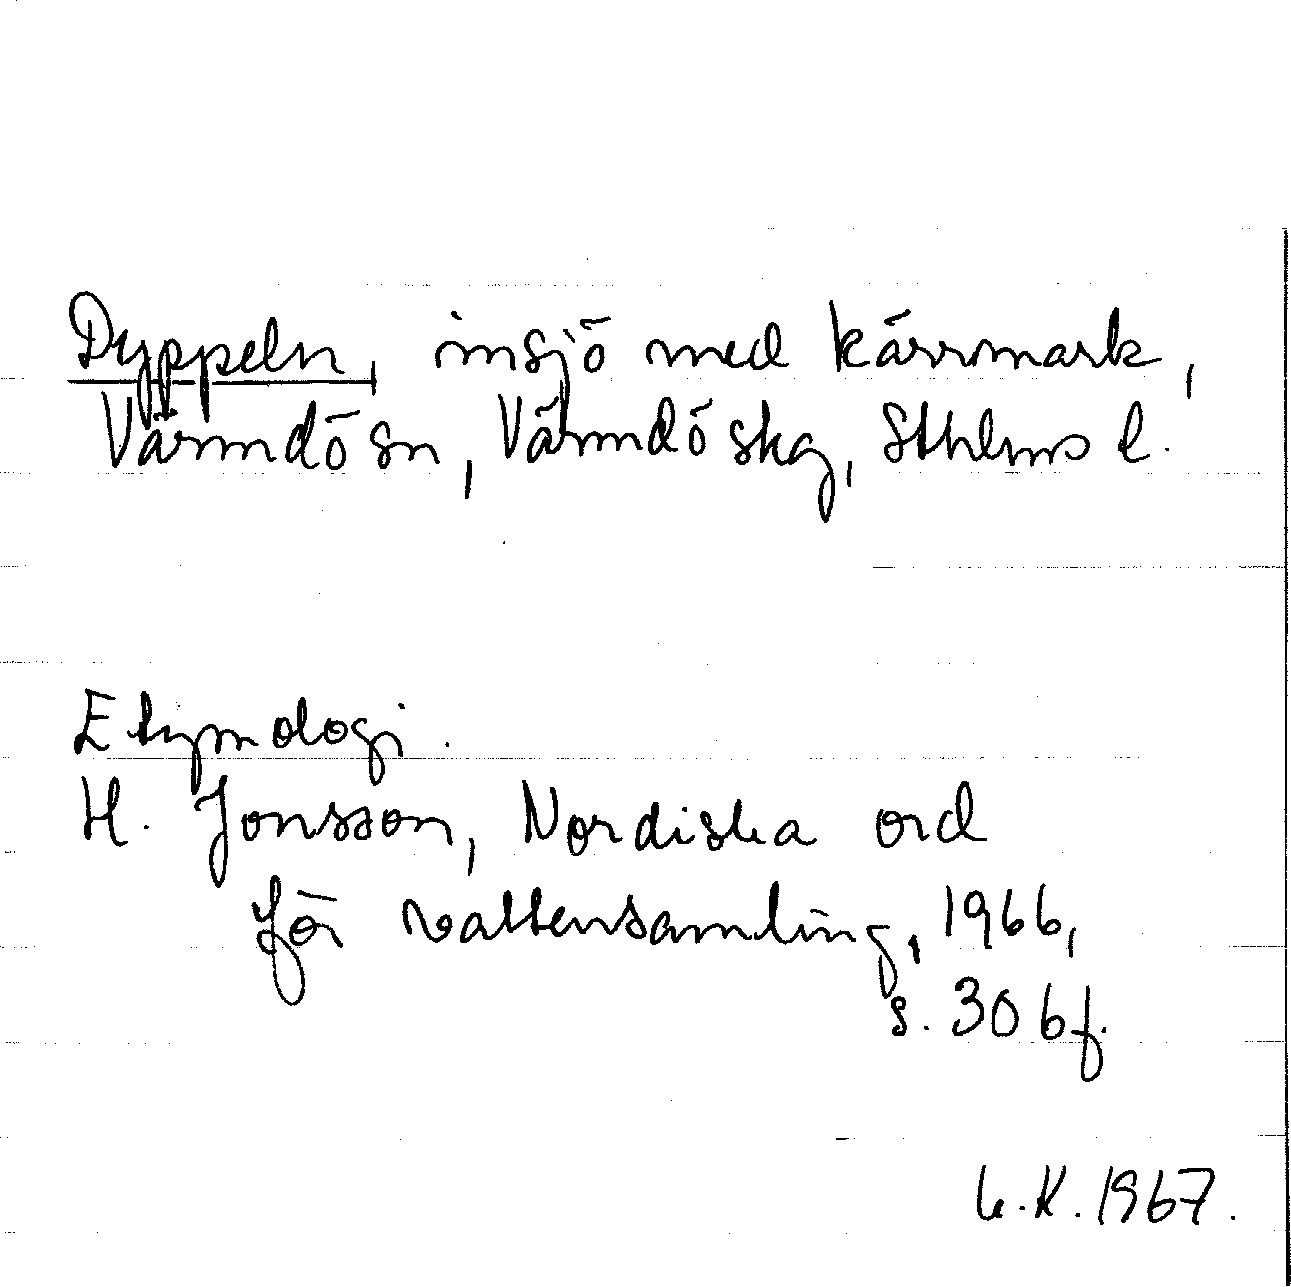 Dyppeln, insjö med kärrmark,
Värmdö sn, Värmdö skg, Sthlms l.
Etymologi.
H. Jonsson, Nordiska ord
för vattensamling, 1966,
s. 306f.
K. 1967.